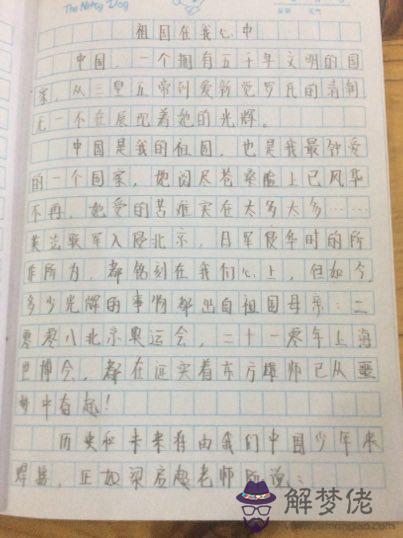 The Nifty Dog
祖国在我心中
中国，一个拥有五千年文明的国
家，从三皇五帝到爱新觉罗氏的清朝
无一不在展现着她的光辉。
中国是我的祖国，也是我最钟爱
的一个国家，她阅尽苍桑脸上已风华
不再，她受的苦难实在太多太多……
英法联军入侵北京，日军侵华时的所
作所为，都铭刻在我们心上，但如今，
多少光辉的事物都出自祖国母亲：二
零零八北京奥运会，二十一零年上海
世博会，都在证实着东方雄师已从噩
梦中奋起！
历史和未来将由我们中国少年来
焊导，正如梁启超老师所说：
解梦佬
www.jiemenglao.com